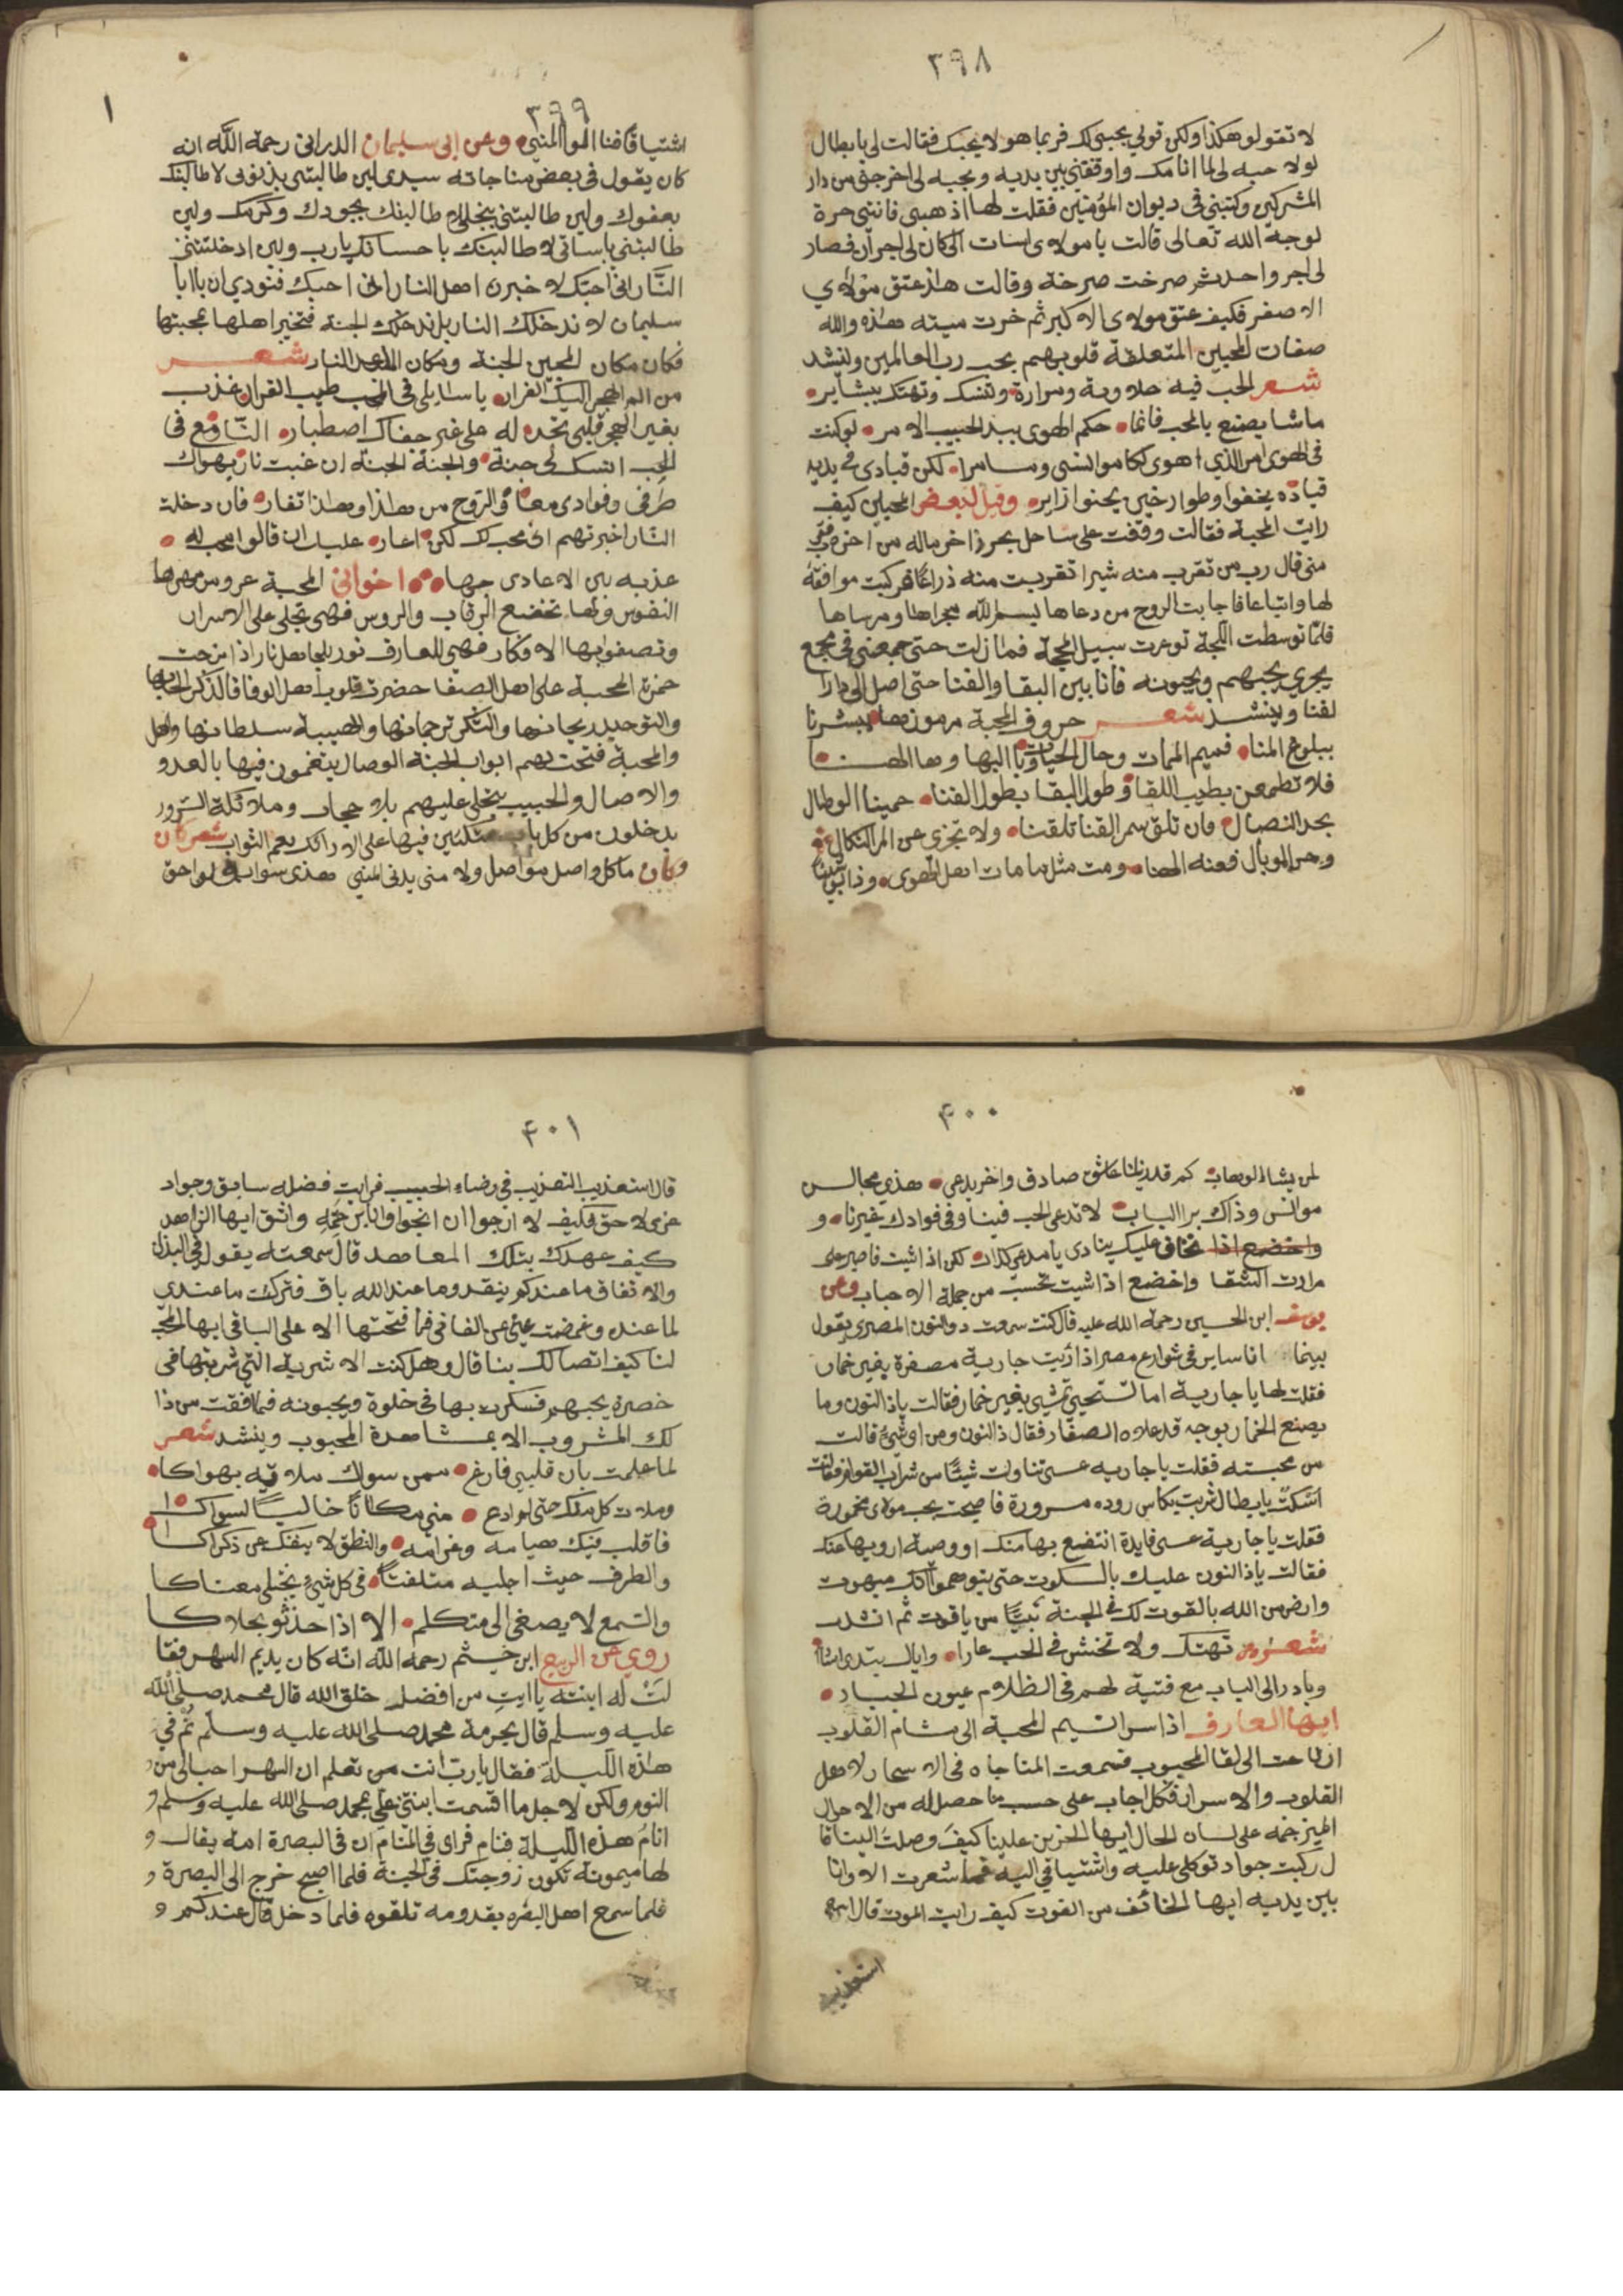 ٣٩٨
لا تقولو هكذا ولكن قولي بحبي لك فربما هو لا يحبك فقالت لي يا بطال
لولا حبه لي لما انامك واوقفني بين يديه وبحبه لي اخرجني من دار
المشركين وكتبني في ديوان المؤمنين فقلت لها اذهبي فانتي حرة
لوجه الله تعالى قالت يا مولاي اسات الي كان لي اجران فصار
لي اجر واحد ثم صرخت صرخة وقالت هذا عتق مولاي
الاصغر فكيف عتق مولاي الاكبر ثم خرت ميته هذه والله
صفات المحبين المتعلقة قلوبهم بحب رب العالمين وانشد
شعر الحب فيه حلاوة ومرارة وتنسك وتهتك ببشاير
ما شا يصنع بالمحب فانما حكم الهوى بيد الحبيب الامر لو كنت
في الهوى امر الذي اهوى لكا موانسي وسامرا لكن قيادي في يديه
وقيل لبعض المحبين كيف
رايت المحبة فقالت وقفت على ساحل بحر زاخر ماله من اخر
من قال رب من تقرب منه شبرا تقربت منه ذراعا فركبت موافقة
لها واتباعا فاجابت الروح من دعاها بسم الله مجراها ومرساها
فلما توسطت اللجة توعرت سبيل المحجة فما زلت حتى جمعني في مجمع
بحري يحبهم ويحبونه فانا بين البقا والفنا حتى اصل الى دار
لفنا وينشد شعر حروف المحبة مرموزها يبشرنا
ببلوغ المنا فميم الممات وحا الحيات وبا البها وها الهنا
فلا تطمعن بطيب اللقا وطول البقا بطول الفنا حمينا الوصال
بحد النصال فان تلق سمر القنا تلقنا ولا تجزي عن امر النكال
وحر الوبال فعنه الهنا ومت مثل ما مات اهل الهوى
٣٩٩
اشتياقا فنا الموا المني وعن ابي سليمان الدراني رحمة الله انه
كان يقول في بعض مناجاته سيدي لين طالبتني بذنوبي لاطالبنك
بعفوك ولين طالبتني ببخلي لاطالبنك بجودك وكرمك ولين
طالبتني باساتي لاطالبنك باحسانك يارب ولين ادخلتني
النار اني احبك لاخبرن اهل النار اني احبك فنودي ان يا ابا
سليمان لا ندخلك النار بل ندخلك الجنة فتخبر اهلها بمحبتها
فكان مكان المحبين الجنة ومكان النار شعر
من الم الهجر اليك الفرار يا سايلي في الحب طيب القرار عذب
بغير الهجر قلبي تجده له على غير جفاك اصطبار النار مع في
الحب انسك لي جنة والجنة الجنة ان غبت نار يهواك
طرفي وفوادي معا والروح من هذا وهذا تغار فان دخلت
النار اخبرتهم اني محب لك لكن اعار عليك ان قالوا محب له
عذبه بين الاعادي جهار اخواني المحبة عروس مهرها
النفوس ولها تخضع الرقاب والروس فهي تجلى على الاسرار
وتصفوا بها الافكار فهي للعارف نور نار اذا مزجت
خمرة المحبة على اهل الصفا حضرت قلوب اهل الوفا فالذكر
والتوحيد ريحانها والشكر ترجمانها والهيبة سلطانها واهل
والمحبة فتحت لهم ابواب الجنة الوصال يتنعمون فيها بالغدو
والاصال والحبيب يتجلى عليهم بلا حجاب وملائكة السرور
يدخلون من كل باب متكئين فيها على الارائك نعم الثواب شعر كان
وكان ما كل واصل مواصل ولا مني يدني المني هذي سوابق لواحق
٤٠٠
لمن يشا الوهاب كم قد رينا عاشق صادق واخر يدعي هذي مجالس
موانس وذاك برا الباب لا تدعي الحب فينا وفي فوادك غيرنا و
واخضع اذا تخاف عليك ينادي يا مدعي كذاب لكن اذا شيت فاصبر على
مرارت الشقا واخضع اذا شيت تحسب من جملة الاحباب وعن
يوسف ابن الحسين رحمة الله عليه قال كنت سمعت ذو النون المصري يقول
بينما انا ساير في شوارع مصر اذا رايت جارية مصفرة بغير خمار
فقلت لها يا جارية اما تستحي تمشي بغير خمار فقالت يا ذا النون وما
يصنع الخمار بوجه قد علاه الصفار فقال ذالنون ومن اي شيء قالت
من محبته فقلت يا جاريه عسى تناولت شيئا من شراب القوم فقالت
اسكت يا بطال شربت بكاس روده مسرورة فاصبحت بحب مولاي مخمورة
فقلت يا جارية عسى فايدة انتفع بها منك او وصية ارويها عنك
فقالت يا ذالنون عليك بالسكوت حتى يتوهموا انك مبهوت
وارض من الله بالقوت لك في الجنة بيتا من ياقوت ثم انشد
شعر تهتك ولا تخشى في الحب عارا واياك
وبادر الى الباب مع فتية لهم في الظلام عيون
ايها العارف اذا سرا نسيم المحبة الى مشام القلوب
ارتاحت الى لقا المحبوب فسمعت المناجاه في الاسحار لاهل
القلوب والاسرار فكل اجاب على حسب ما حصل له من الاحوال
المترجمه على لسان الحال ايها الحزين علينا كيف وصلت الينا قا
ل ركبت جواد توكلي عليه واشتياقي اليه فما شعرت الا وانا
بين يديه ايها الخائف من الفوت كيف رايت الموت قال
استعذيب
٤٠١
قال استعذيب التعذيب في رضاء الحبيب فرايت فضله سابق وجواد
عزى لاحق فكيف لا ارجوا ان انجوا وانا بن واثق ايها الزاهد
كيف عهدك بتلك المعاهد قال سمعته يقول في البذل
والانفاق ما عندكم ينفد وما عند الله باق فتركت ما عندي
لما عنده وغمضت عيني عن الفاني فما فتحتها الا على الباقي ايها المحب
لنا كيف اتصالك بنا قال وهل كنت الا شربة التي شربتها في
حضرة يحبهم فسكرت بها في خلوة ويحبونه فما افقت من ذا
لك المشروب الا بمشاهدة المحبوب وينشد شعر
لما علمت بان قلبي فارغ ممن سواك ملاته بهواكا
وملات كل منك حتى لم ادع مني مكانا خاليا لسواكا
فالقلب فيك هيامه وغرامه والنطق لا ينفك عن ذكراكا
والطرف حيث اجليه متلفتا في كل شيء يجتلي معناكا
والسمع لا يصغي الى متكلم الا اذا حدثو بحلاكا
روي عن الربيع ابن خيثم رحمه الله انه كان يديم السهر فقا
لت له ابنته يا ابت من افضل خلق الله قال محمد صلى الله
عليه وسلم قال بحرمة محمد صلى الله عليه وسلم نم في
هذه الليلة فقال يارب انت تعلم ان السهر احب الي من
النوم ولكن لاجل ما اقسمت ابنتي علي بمحمد صلى الله عليه وسلم و
انام هذه الليلة فنام فراى في المنام ان في البصرة امة يقال و
لها ميمونة تكون زوجتك في الجنة فلما اصبح خرج الى البصرة و
فلما سمع اهل البصره بقدومه تلقوه فلما دخل قال عندكم و